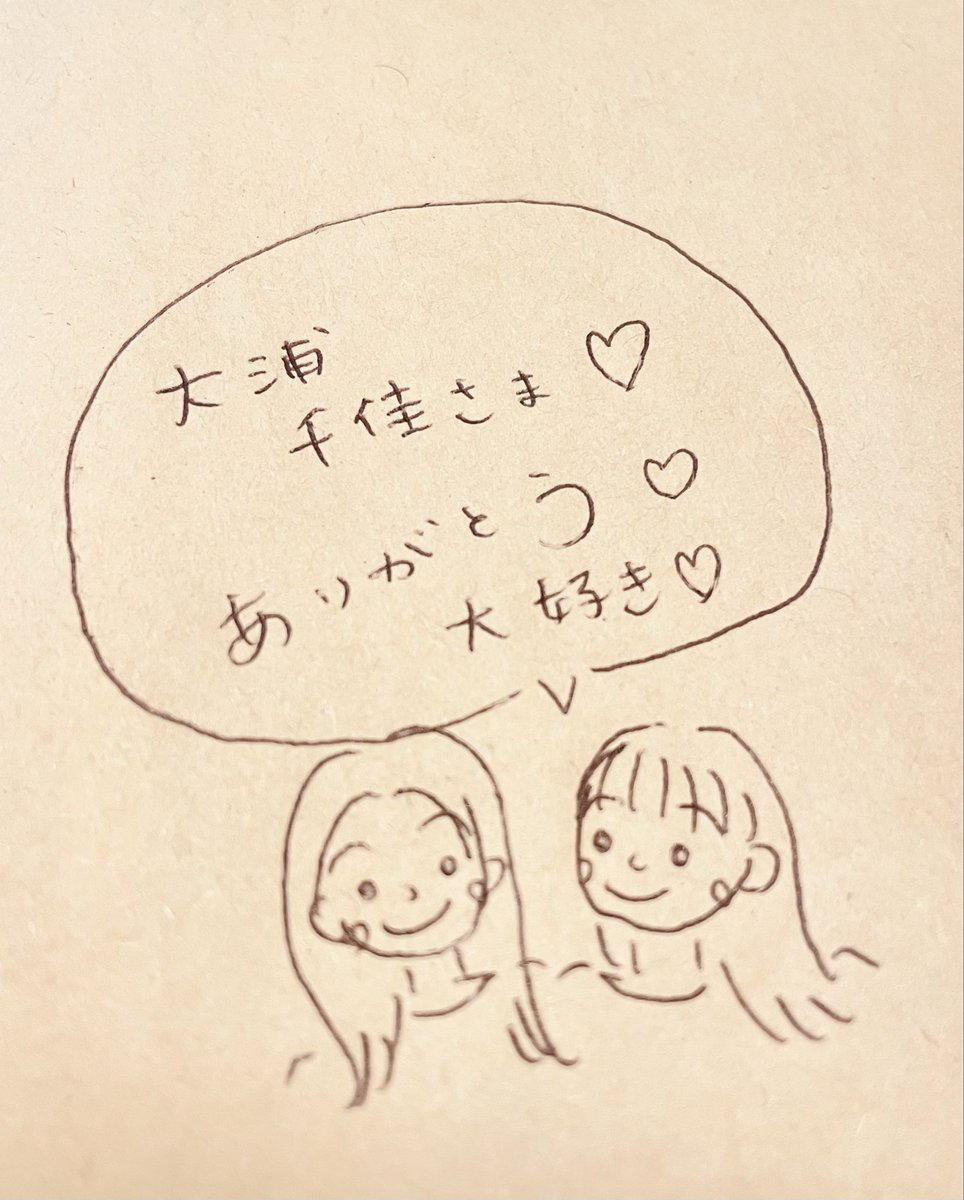 大浦
千佳さま♡
ありがとう♡
大好き♡